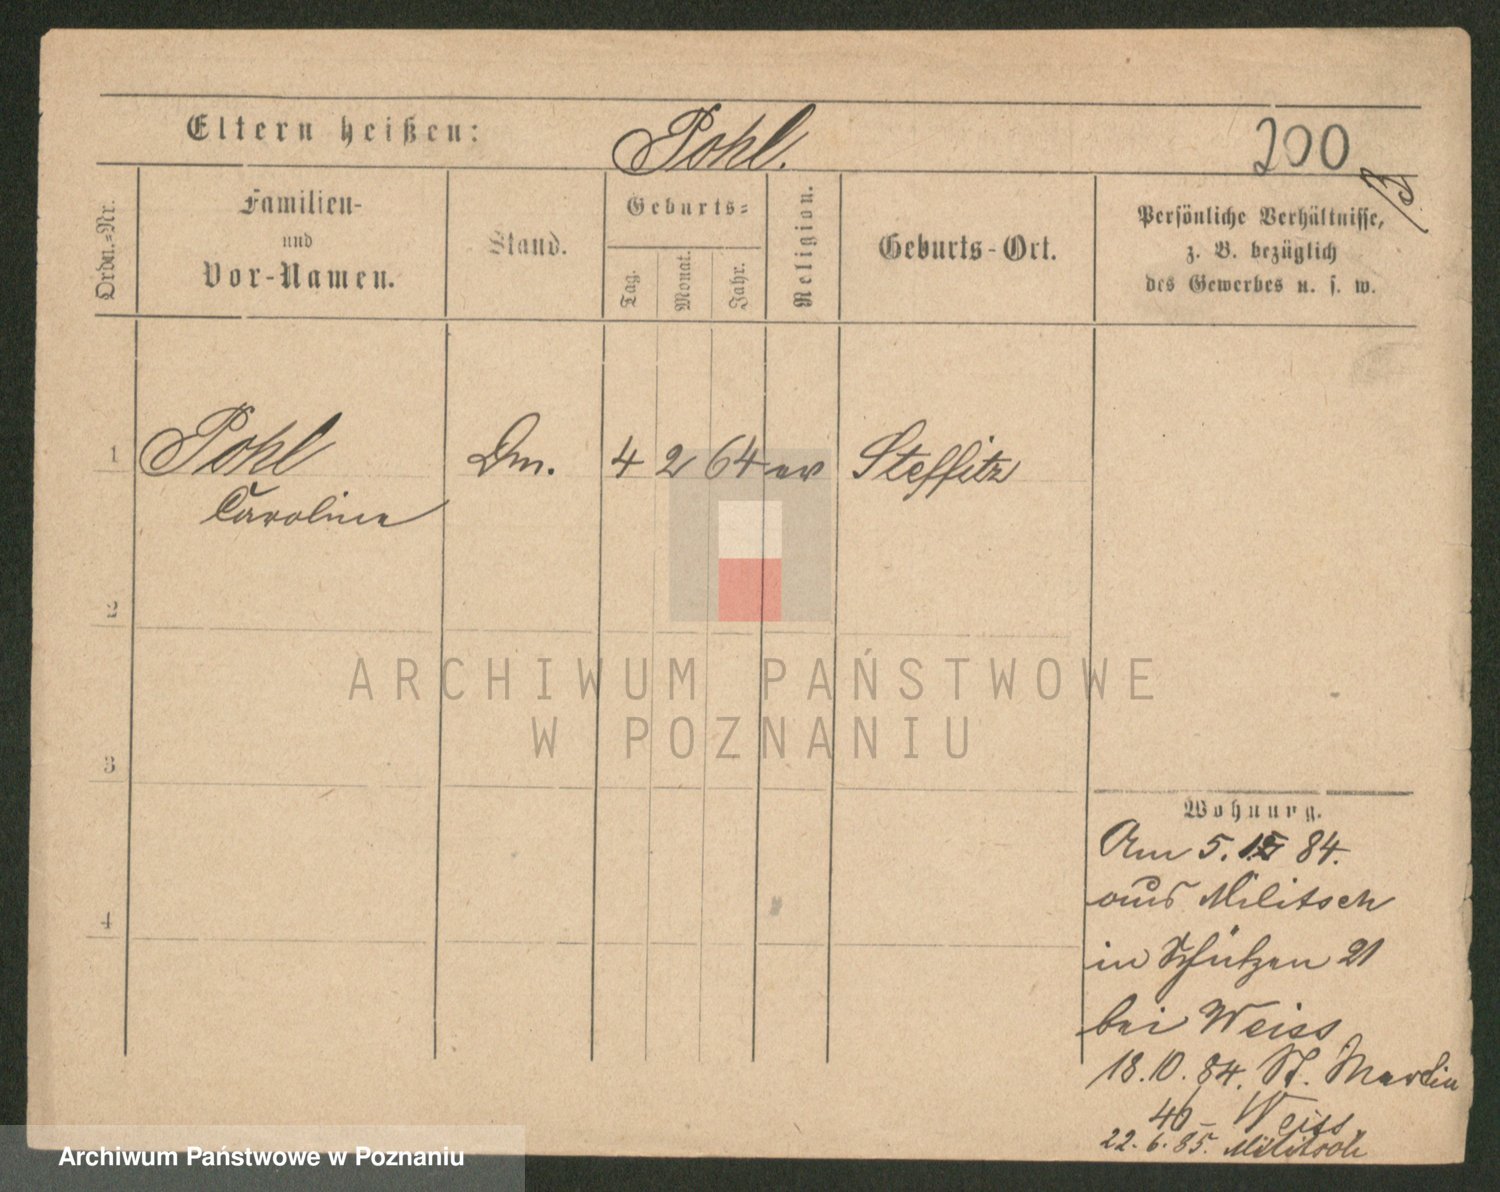 Eltern heißen: Pohl. 200
13
Ordn.=Nr.
Familien-
und
Vor-Namen.
Stand.
Geburts=
Tag.
Monat.
Jahr.
Religion.
Geburts-Ort.
Persönliche Verhältnisse,
z. B. bezüglich
des Gewerbes u. s. w.
1 Pohl Dm. 4 2 64 ev Steffitz
Caroline
2
3
4
ARCHIWUM PAŃSTWOWE
W POZNANIU
Wohnung.
Am 5. 84.
aus Militsch
in Schützen 21
bei Weiss
18.10.84. St. Martin
40 - Weiss
22.6.85. Militsch
Archiwum Państwowe w Poznaniu